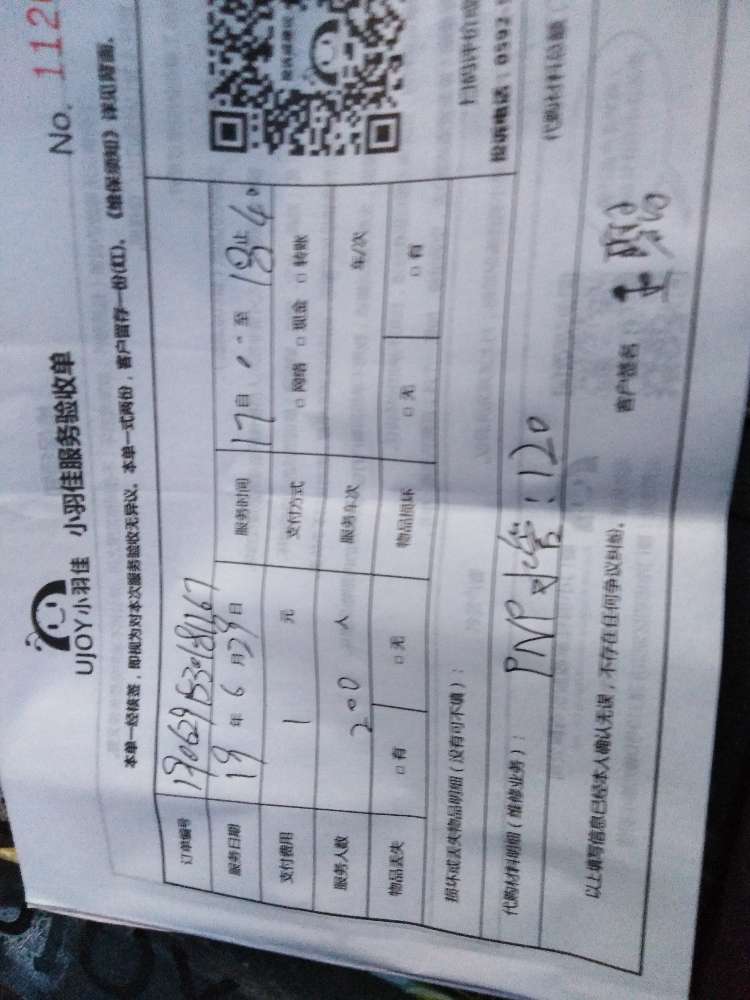 No. 112
UJOY小羽佳 小羽佳服务验收单
本单一经核签，即视为对本次服务验收无异议。本单一式两份，客户留存一份(红)。《维保须知》详见背面。
订单编号
服务日期 19 年 6 月 29 日 服务时间 17 自 至 18 止 40
支付费用 1 元 支付方式 □ 网络 □ 现金 □ 转账
服务人数 200 人 服务车次 车/次
物品丢失 □ 有 □ 无 物品损坏 □ 无 □ 有
损坏或丢失物品明细（没有可不填）：
扫码评价
投诉电话：0592
代购材料明细（维修业务）： 代购材料总额
PNP水管：120
以上填写信息已经本人确认无误，不存在任何争议纠纷。 客户签名